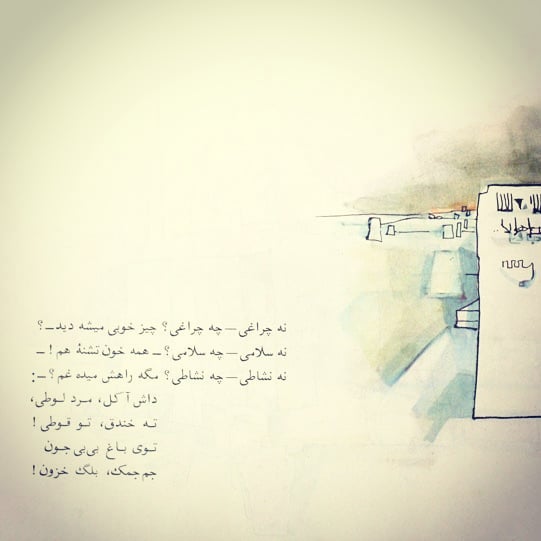 نه چراغی — چه چراغی؟ چیز خوبی میشه دید ــ ؟
نه سلامی — چه سلامی؟ ــ همه خون تشنهٔ هم ! ــ
نه نشاطی — چه نشاطی؟ مگه راهش میده غم ؟ ــ :
داش آکل، مرد لوطی،
ته خندق، تو قوطی !
توی باغ بی‌بی جون
جم جمک، بلگ خزون !